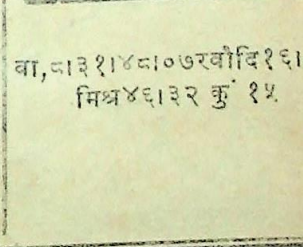 वा,८।३१।४८।०७रवौदि१६।
मिश्र४६।३२ कुं १५